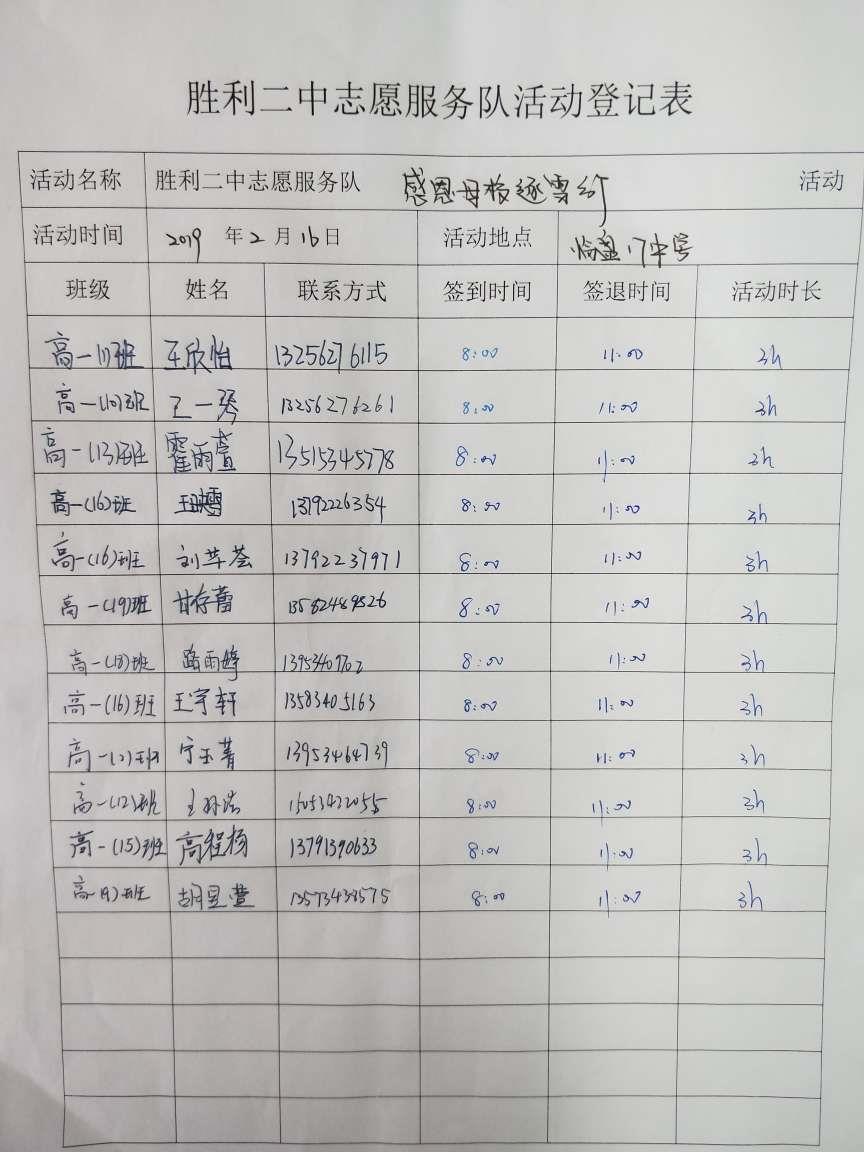 胜利二中志愿服务队活动登记表
活动名称 胜利二中志愿服务队 感恩母校逐雪行 活动
活动时间 2019 年 2 月 16 日 活动地点 临盘
班级 姓名 联系方式 签到时间 签退时间 活动时长
高一(1)班 王欣怡 13256276115 8:00 11:00 3h
高一(10)班 王一琴 13256276261 8:00 11:00 3h
高一(13)班 霍雨萱 13515345778 8:00 11:00 3h
高一(16)班 1379226354 8:00 11:00 3h
高一(16)班 刘苹荟 13792237971 8:00 11:00 3h
高一(19)班 甘存蕾 8:00 11:00 3h
高一(18)班 路雨婷 8:00 11:00 3h
高一(16)班 王宇轩 13583405163 8:00 11:00 3h
高一(2)班 宁玉菁 13953464739 8:00 11:00 3h
高一(12)班 15053422055 8:00 11:00 3h
高一(15)班 高程杨 13791390633 8:00 11:00 3h
高一(9)班 胡昱萱 13573438575 8:00 11:00 3h